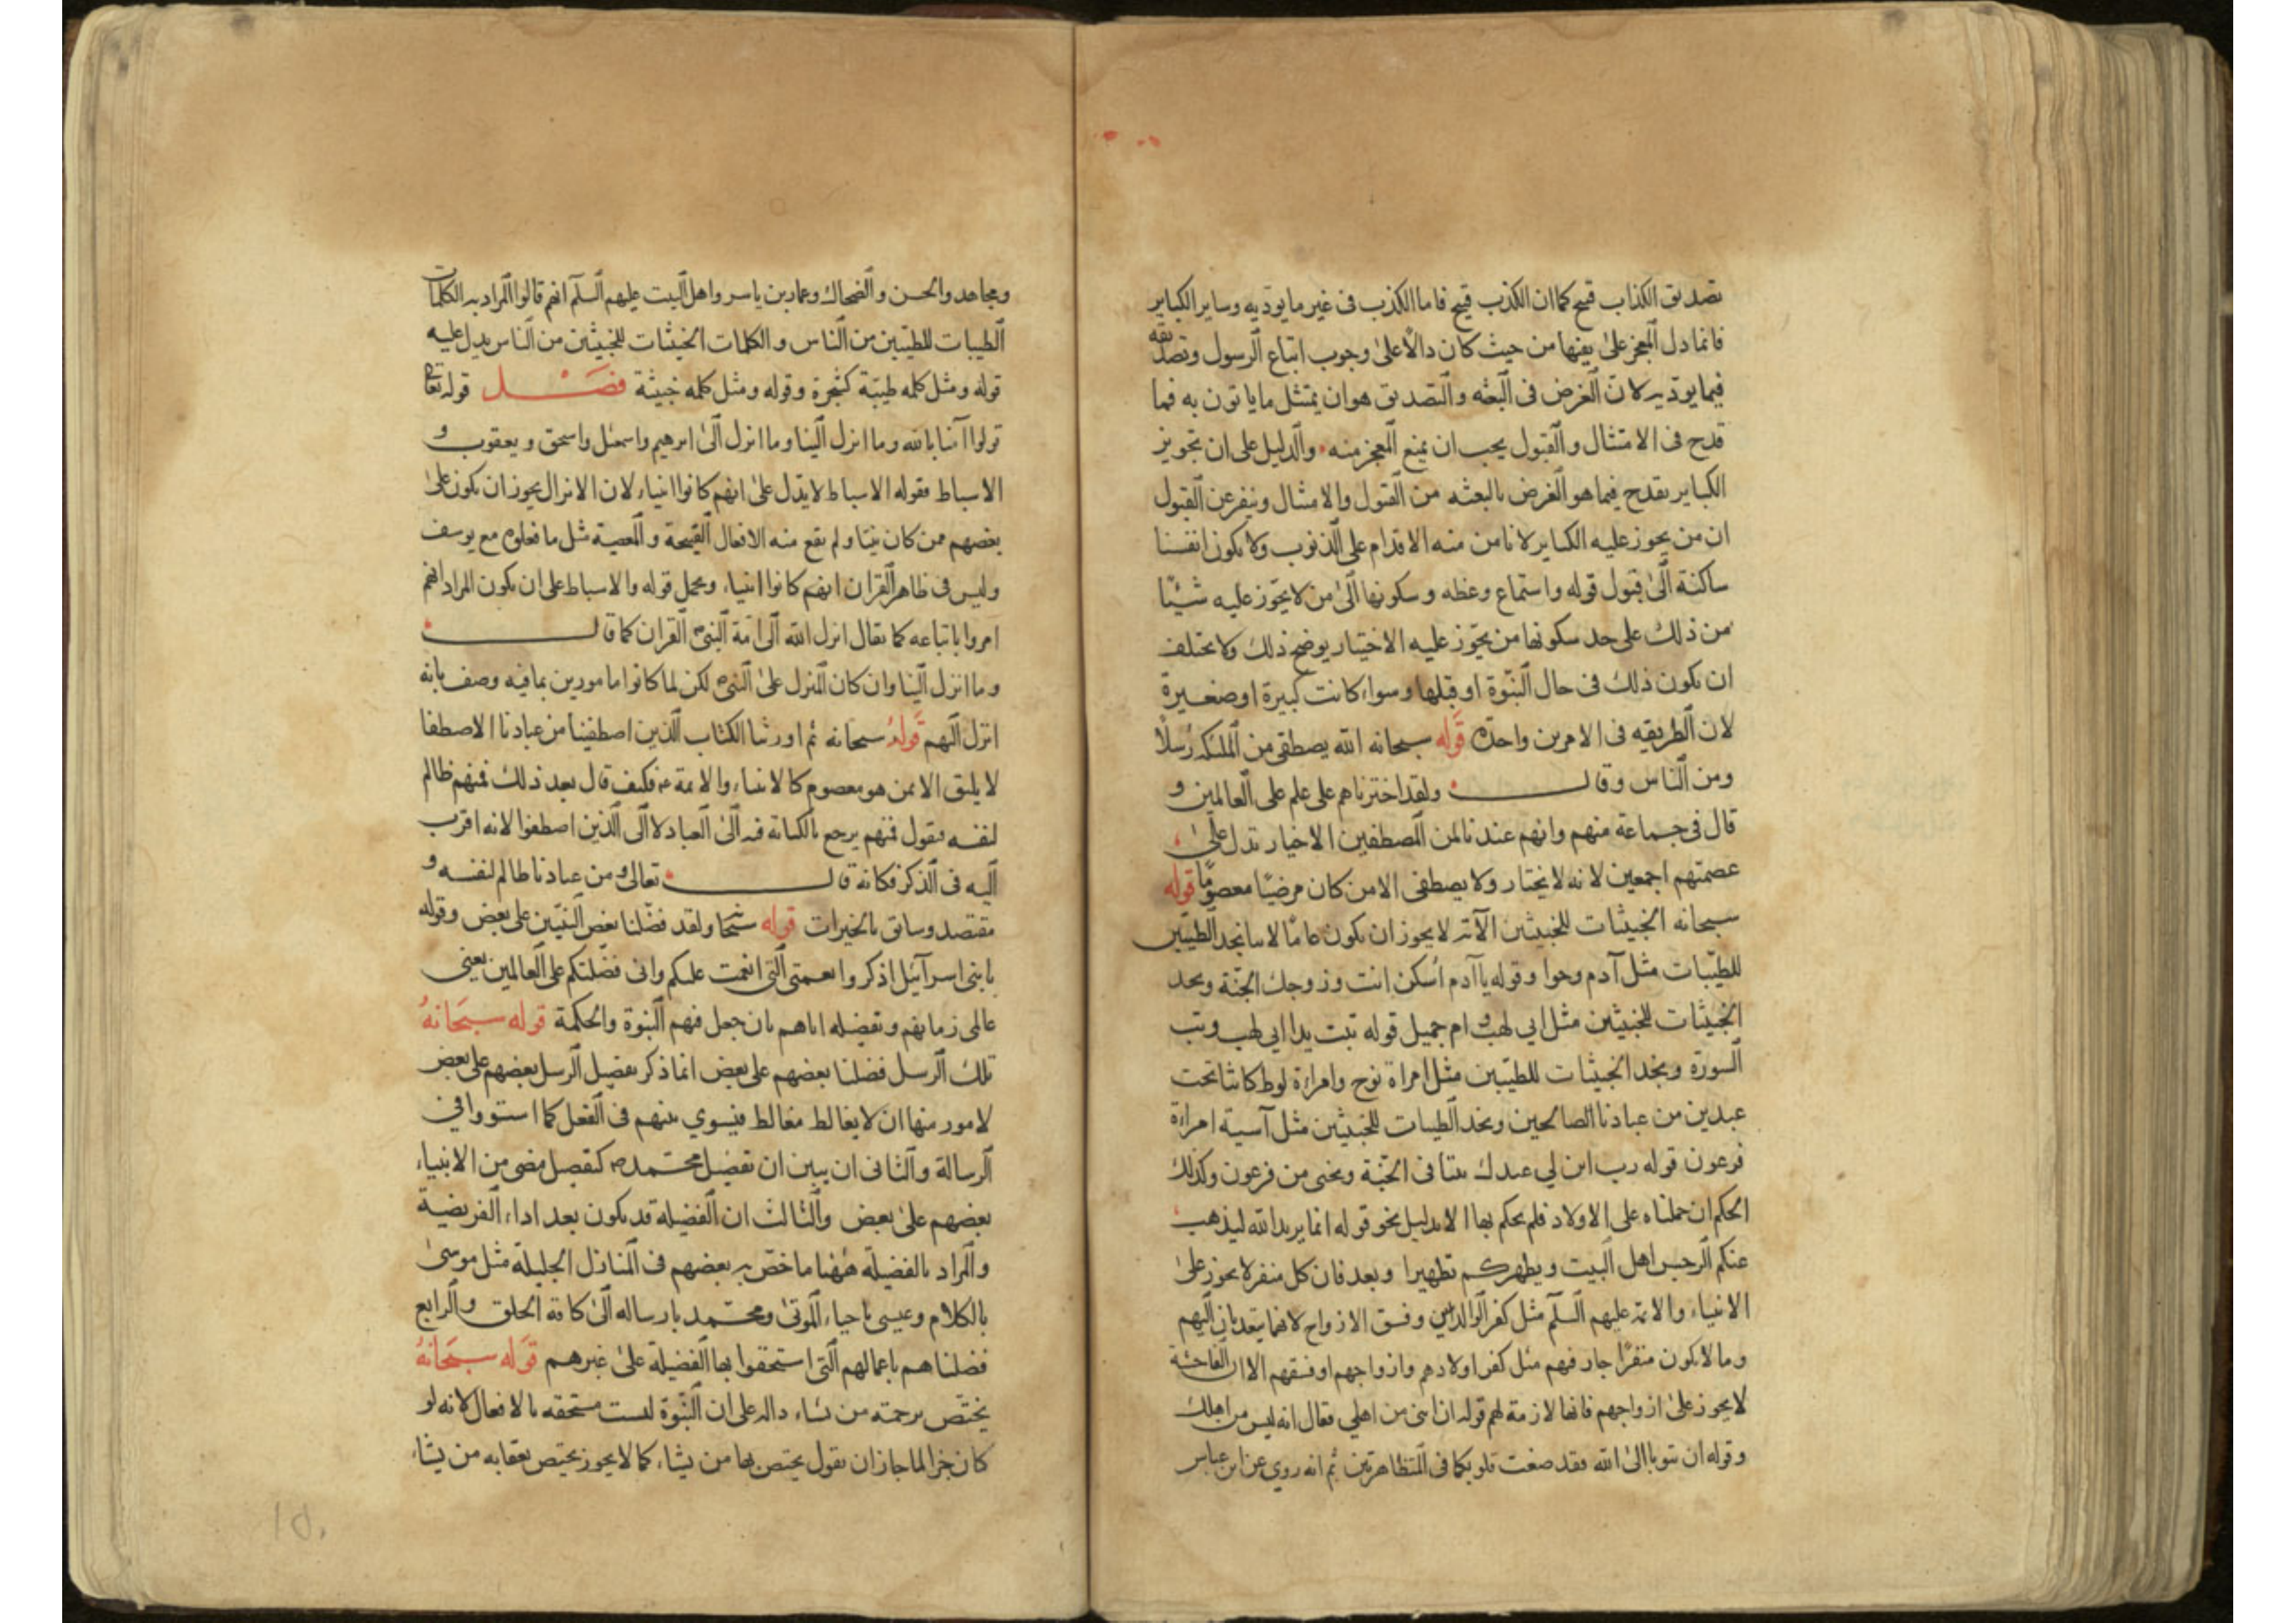 تصديق الكذاب قبيح كما ان الكذب قبيح فاما الكذب فى غير ما يوديه وساير الكباير
فانما دل المعجز على نفيها من حيث كان دالا على وجوب اتباع الرسول وتصديقه
فيما يوديه لان الغرض فى البعثه والتصديق هو ان يمتثل ما ياتون به فما
قدح فى الامتثال والقبول يجب ان يمنع المعجز منه والدليل على ان تجويز
الكباير يقدح فيما هو الغرض بالبعثه من القبول والامتثال وينفر عن القبول
ان من يجوز عليه الكباير لا نامن منه الاقدام على الذنوب ولا يكون انفسنا
ساكنة الى قبول قوله واستماع وعظه وسكونها الى من لا يجوز عليه شيئا
من ذلك على حد سكونها من يجوز عليه الاختيار يوضح ذلك ولا يختلف
ان يكون ذلك فى حال النبوة او قبلها وسواء كانت كبيرة او صغيرة
لان الطريقه فى الامرين واحدة قوله سبحانه الله يصطفى من الملئكه رسلا
ومن الناس وقال ولقد اخترناهم على علم على العالمين و
قال فى جماعة منهم وانهم عندنا لمن المصطفين الاخيار تدل على
عصمتهم اجمعين لانه لا يختار ولا يصطفى الا من كان مرضيا معصوما قوله
سبحانه الخبيثات للخبيثين الآية لا يجوز ان يكون عاما لانا نجد الطيبين
للطيبات مثل آدم وحوا وقوله يا آدم اسكن انت وزوجك الجنة ونجد
الخبيثات للخبيثين مثل ابي لهب و ام جميل قوله تبت يدا ابي لهب وتب
السورة ونجد الخبيثات للطيبين مثل امراة نوح وامراة لوط كانتا تحت
عبدين من عبادنا الصالحين ونجد الطيبات للخبيثين مثل آسية امراة
فرعون قوله رب ابن لي عندك بيتا فى الجنة ونجنى من فرعون وكذلك
الحكم ان حملناه على الاولاد فلم يحكم بها الا بدليل نحو قوله انما يريد الله ليذهب
عنكم الرجس اهل البيت ويطهركم تطهيرا وبعد فان كل منفر لا يجوز على
الانبياء والائمة عليهم السلم مثل كفر الوالدين وفسق الازواج لانهما يتعديان اليهم
وما لا يكون منفرا جاز فيهم مثل كفر اولادهم وازواجهم او فسقهم الا ان الفاحشة
لا يجوز على ازواجهم فانها لازمة لهم قوله ان ابنى من اهلي فقال انه ليس من اهلك
وقوله ان تتوبا الى الله فقد صغت قلوبكما فى المتظاهرتين ثم انه روي عن ابن عباس
ومجاهد والحسن والضحاك وعمار بن ياسر واهل البيت عليهم السلم انهم قالوا المراد به الكلمات
الطيبات للطيبين من الناس والكلمات الخبيثات للخبيثين من الناس يدل عليه
قوله ومثل كلمه طيبة كشجرة وقوله ومثل كلمه خبيثة فصل قوله تعالى
قولوا آمنا بالله وما انزل الينا وما انزل الى ابرهيم واسمعيل واسحق ويعقوب و
الاسباط فقوله الاسباط لا يدل على انهم كانوا انبياء لان الانزال يجوز ان يكون على
بعضهم ممن كان نبيا ولم يقع منه الافعال القبيحة والمعصية مثل ما فعلوه مع يوسف
وليس فى ظاهر القران انهم كانوا انبياء ويحمل قوله والاسباط على ان يكون المراد انهم
امروا باتباعه كما يقال انزل الله الى امة النبى القران كما قال
وما انزل الينا وان كان المنزل على النبى لكن لما كانوا مامورين بما فيه وصف بانه
انزل اليهم قوله سبحانه ثم اورثنا الكتاب الذين اصطفينا من عبادنا الاصطفا
لا يليق الا بمن هو معصوم كالانبياء والائمة ع فكيف قال بعد ذلك فمنهم ظالم
لنفسه فنقول فمنهم يرجع بالكناية فيه الى العباد لا الى الذين اصطفوا لانه اقرب
اليه فى الذكر فكانه قال تعالى ومن عبادنا ظالم لنفسه و
مقتصد وسابق بالخيرات قوله سبحانه ولقد فضلنا بعض النبيين على بعض وقوله
يا بنى اسرآئيل اذكروا نعمتى التى انعمت عليكم وانى فضلتكم على العالمين يعنى
عالمى زمانهم وتفضيله اياهم بان جعل فيهم النبوة والحكمة قوله سبحانه
تلك الرسل فضلنا بعضهم على بعض انما ذكر تفضيل الرسل بعضهم على بعض
لامور منها ان لا يغالط مغالط فيسوي بينهم فى الفعل كما استووا في
الرسالة والثانى ان يبين ان تفضيل محمد ص كتفضيل مضى من الانبياء
بعضهم على بعض والثالث ان الفضيله قد يكون بعد اداء الفريضة
والمراد بالفضيلة ههنا ما خص به بعضهم فى المنازل الجليلة مثل موسى
بالكلام وعيسى باحياء الموتى ومحمد بارساله الى كافة الخلق والرابع
فضلناهم باعمالهم التى استحقوا بها الفضيلة على غيرهم قوله سبحانه
يختص برحمته من يشاء داله على ان النبوة ليست مستحقه بالافعال لانه لو
كان جزا لما جاز ان يقول يختص بها من يشاء كما لا يجوز يختص بعقابه من يشاء